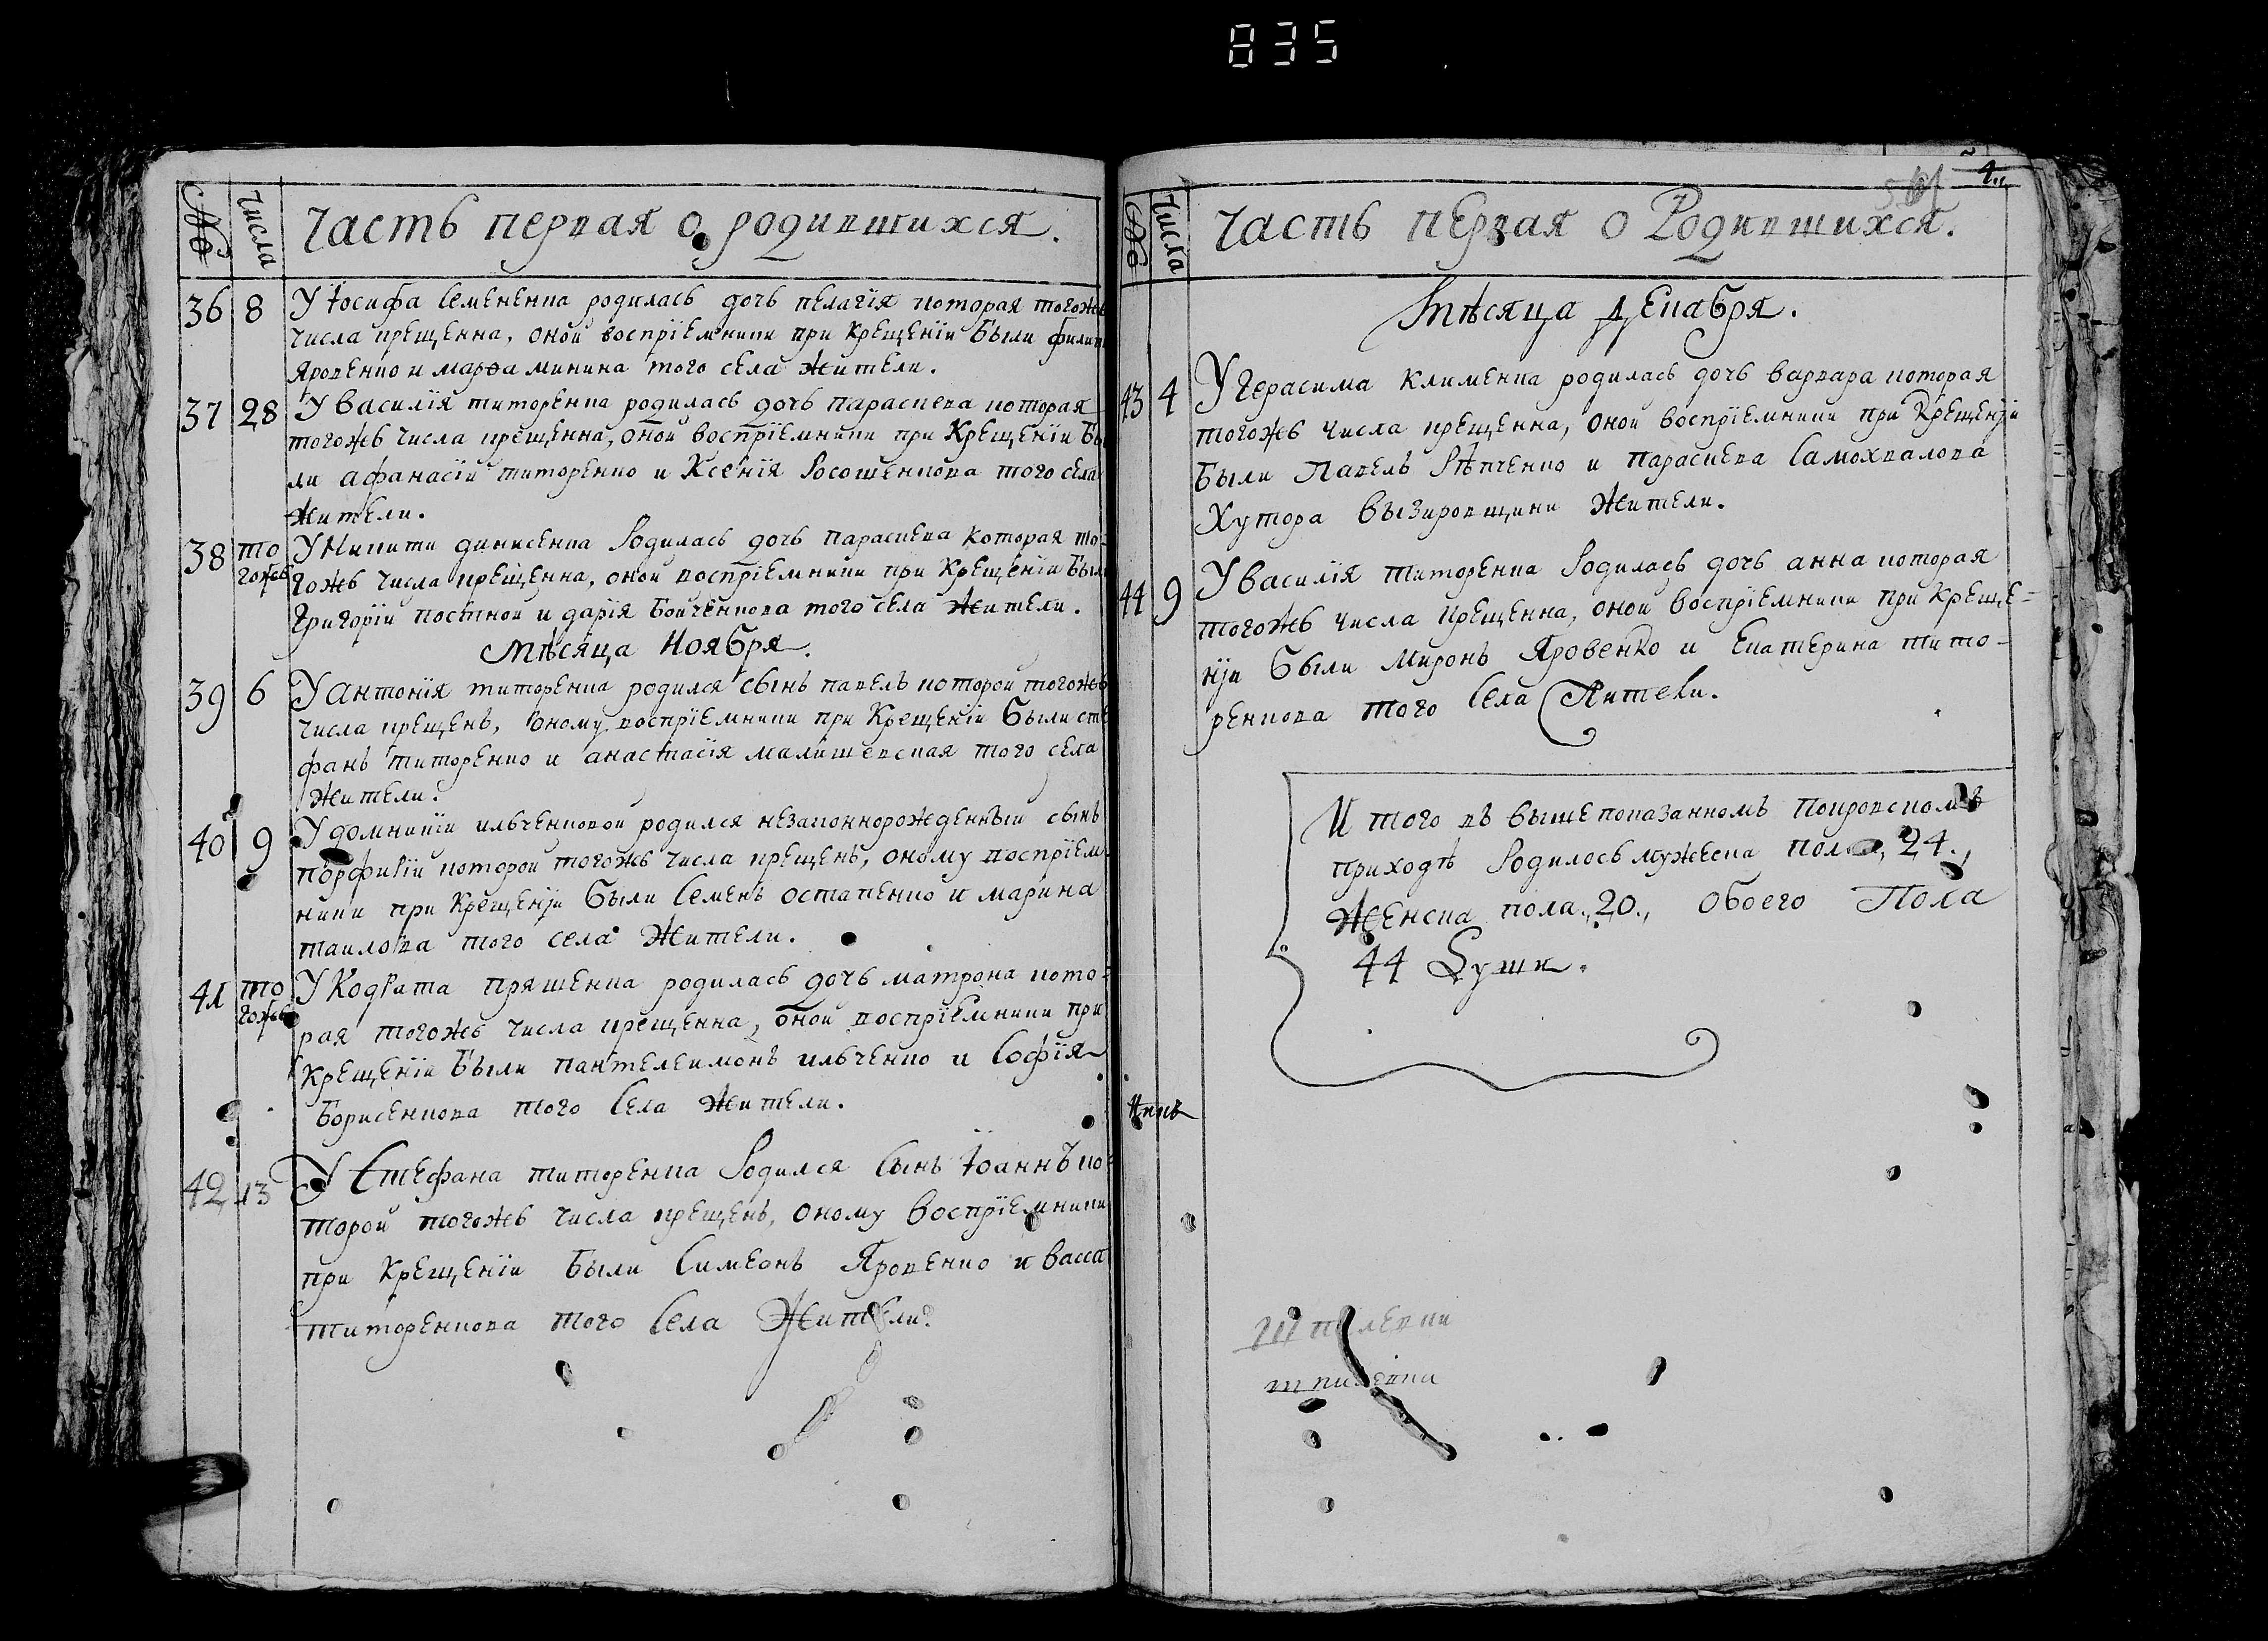 835
№ числа Часть первая о родившихся.
36 8 У Іосифа Семененка родилась дочь пелагія которая тогожъ
числа крещенна, оной воспріемники при Крещеніи были филип
яровенко и марѳа минина того села жители.
37 28 У василія титоренка родилась дочь параскева которая
тогожъ числа крещенна, оной воспріемники при Крещеніи бы
ли афанасіи титоренко и Ксенія Росошенкова того села
жители.
38 то У Никити динисенка Родилась дочь параскева которая то-
гожъ гожъ числа крещенна, оной воспріемники при Крещеніи были
григоріи постной и дарія бойченкова того села жители.
Мѣсяца Ноября.
39 6 У антонія титоренка родился сынъ павелъ которой тогожъ
числа крещенъ, оному воспріемники при Крещеніи были сте
фанъ титоренко и анастасія малишевская того села
жители.
40 9 У домникіи ильченковой родился незаконнорожденный сынъ
порфиріи которой тогожъ числа крещенъ, оному воспріем
ники при крещеніи были Семенъ остапенко и марина
таилова того села жители.
41 то У Кодрата пряшенка родилась дочь матрона кото-
гожъ рая тогожъ числа крещенна, оной воспріемники при
крещеніи были пантелеимонъ ильченко и Софія
борисенкова того Села жители.
42 13 У Стефана титоренка Родился Сынъ Іоаннъ ко-
торой тогожъ числа крещенъ, оному воспріемники
при Крещеніи были Симеонъ Яровенко и васса
титоренкова того Села Жители
4.
№ числа Часть первая о Родившихся.
Мѣсяца Декабря.
43 4 У герасима Клименка родилась дочь варвара которая
тогожъ числа крещенна, оной воспріемники при Крещеніи
были Павелъ Рѣпченко и параскева Самохвалова
Хутора Вызировщини Жители.
44 9 У василія Титоренка Родилась дочь анна которая
тогожъ числа крещенна, оной воспріемники при Креще-
ніи были Миронъ Яровенко и Екатерина тито-
ренкова того Села Жители.
И того въ вышепоказанномъ покровскомъ
приходѣ Родилось мужеска пола, 24.,
Женска пола., 20., Обоего Пола
44 Души.